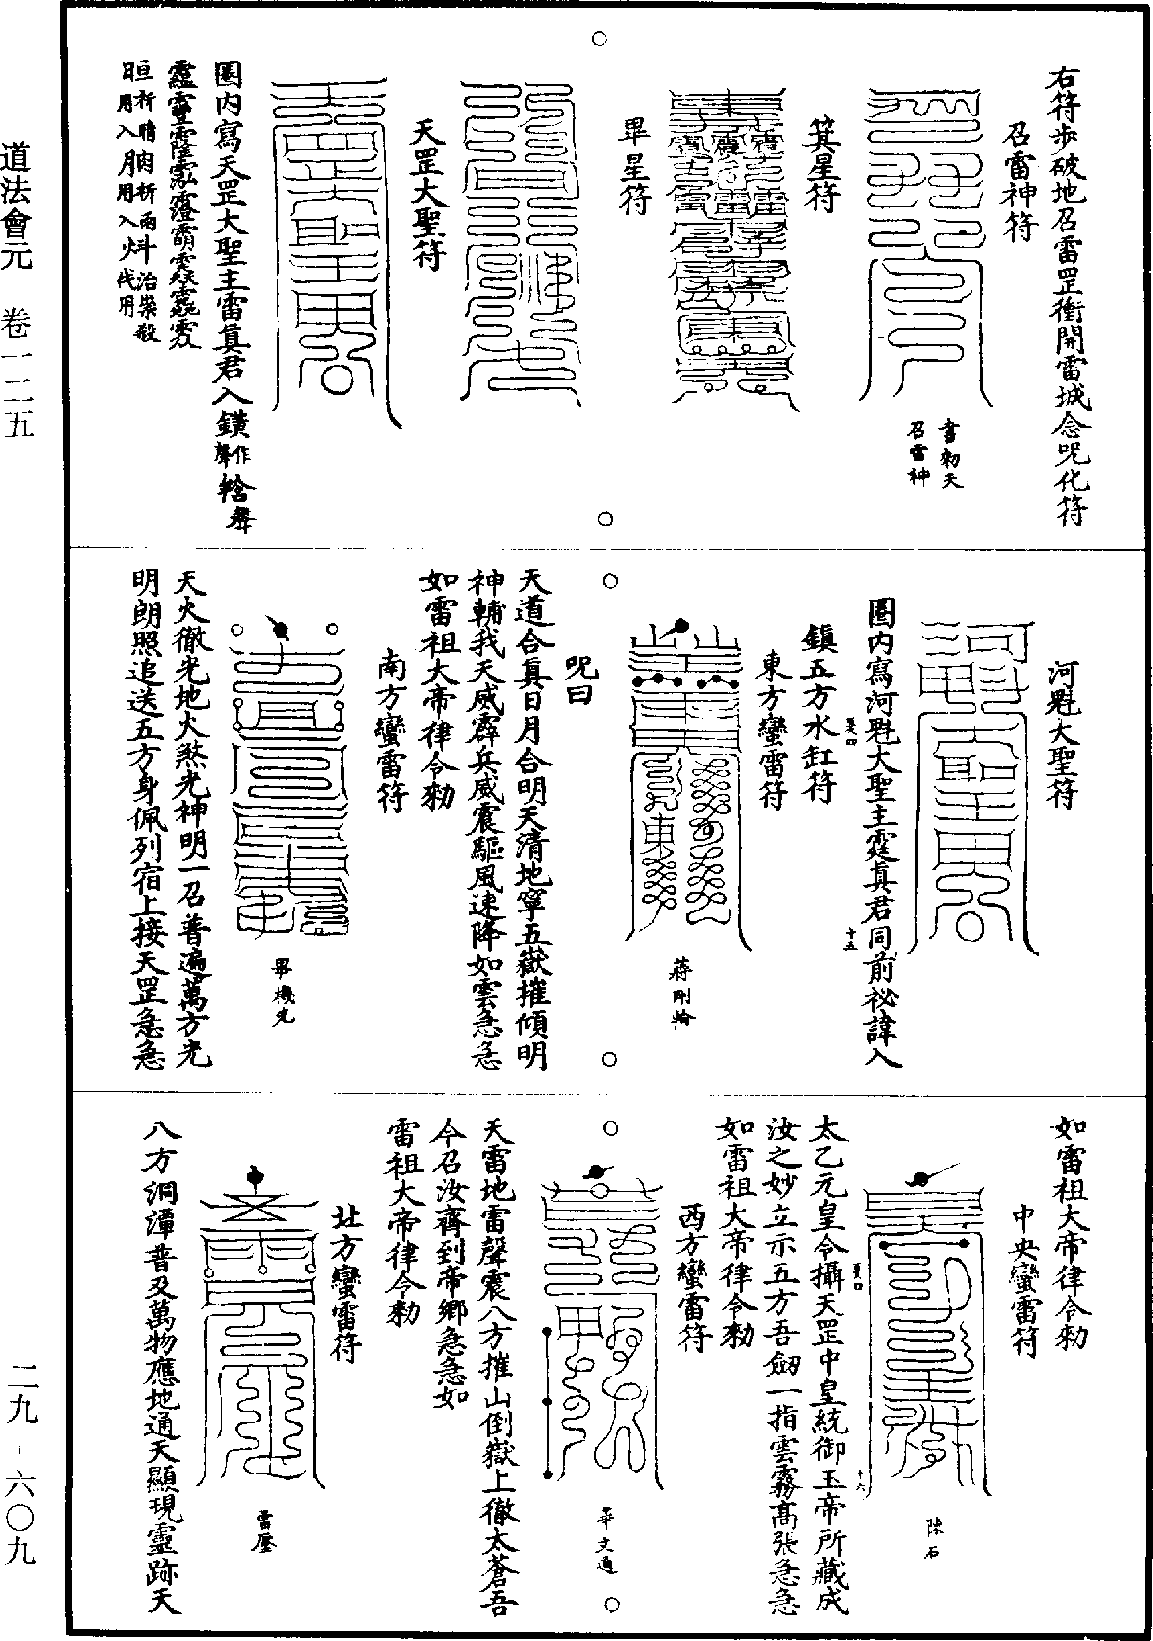 道法會元　卷一二五
二九-六〇九
右符步破地召雷罡衝開雷城念呪化符
召雷神符
書勑天
召雷神
箕星符
畢星符
天罡大聖符
圈內寫天罡大聖主雷真君入鐄作聲
日用入月用入火伐用
河魁大聖符
圈內寫河魁大聖主霆真君同前祕諱入
十五
鎮五方水缸符
東方蠻雷符
蔣剛輪
呪曰
天道合真日月合明天清地寧五嶽摧傾明
神輔我天威霹兵威震驅風速降如雲急急
如雷祖大帝律令勑
南方蠻雷符
畢機先
天火徹光地火煞光神明一召普遍萬方光
明朗照追送五方身佩列宿上接天罡急急
如雷祖大帝律令勑
中央蠻雷符
陳石
太乙元皇令攝天罡中皇統御玉帝所藏成
十六
汝之妙立示五方吾劒一指雲霧高張急急
如雷祖大帝律令勑
西方蠻雷符
華文通
天雷地雷聲震八方摧山倒嶽上徹太蒼吾
今召汝齊到帝鄉急急如
雷祖大帝律令勑
北方蠻雷符
雷壓
八方洞潭普及萬物應地通天顯現靈跡天